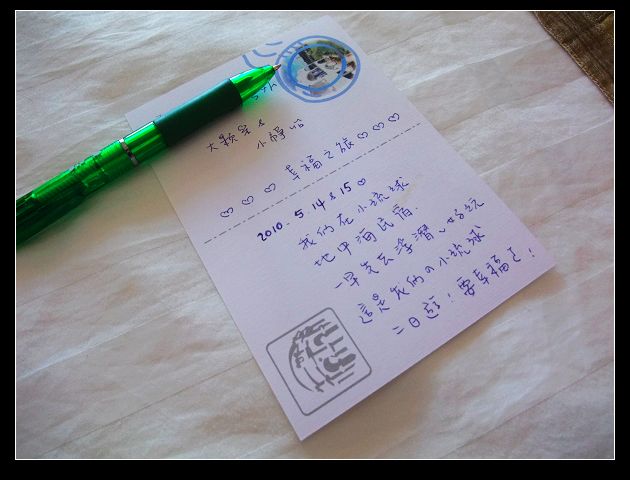 大顆呆 &
小靜怡
♡ ♡ ♡ 幸福之旅 ♡ ♡ ♡
2010. 5. 14 & 15 ♡
我們在小琉球
地中海民宿.
一早先去浮潛
這是我們の小琉球
二日遊! 要幸福ㄛ!